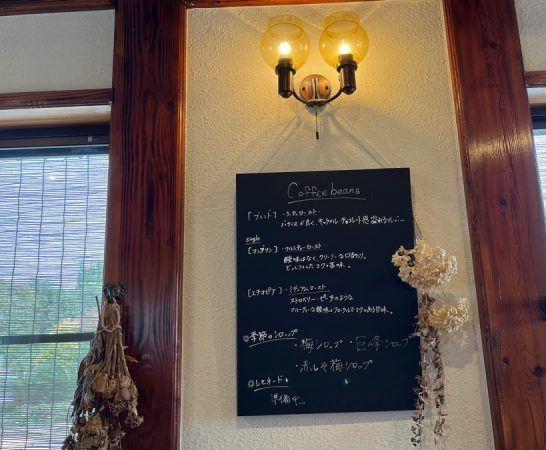 Coffee beans
[ブレンド]・シティロースト
バランスが良く、キャラメル チョコレート感
Single
[マンデリン]・フルシティーロースト
酸味はなく、クリーミーな口当り。
どっしりとしたコクと苦味。
[エチオピア]・ミディアムロースト
ストロベリー・ピーチのような
フルーティな酸味と
季節のシロップ
・梅シロップ ・巨峰シロップ
・赤しそ梅シロップ
レモネード
準備中...